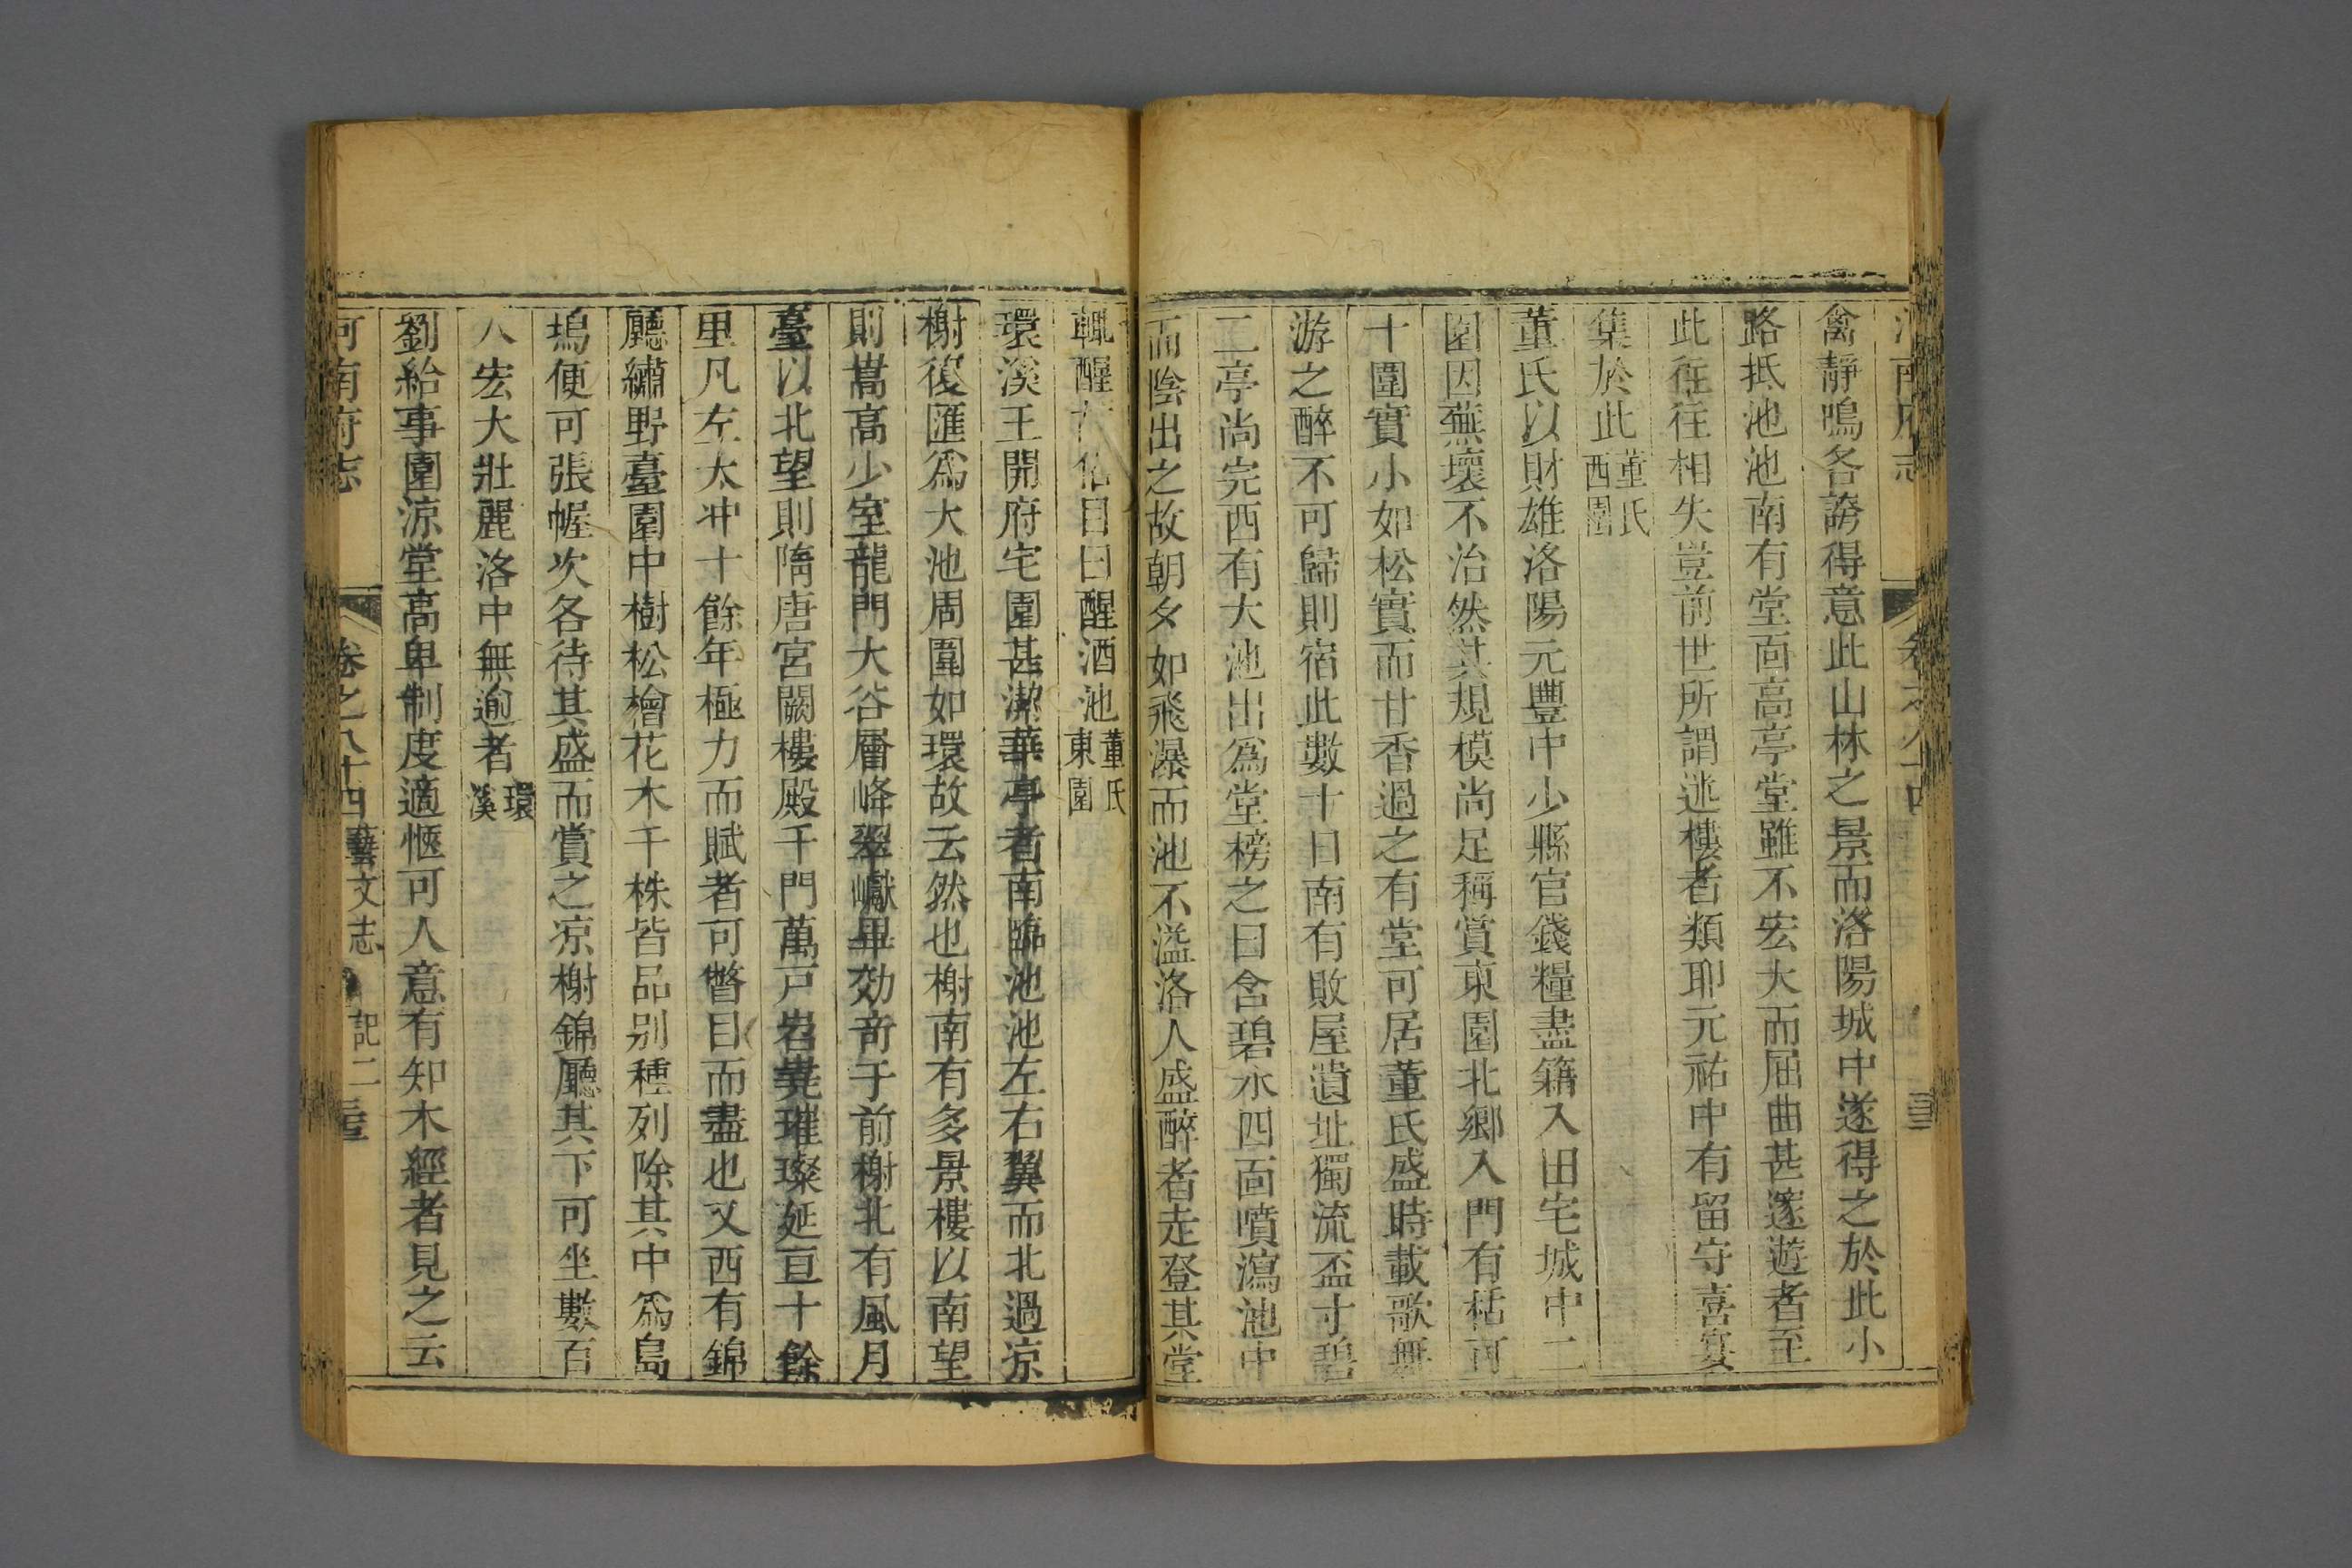 河南府志 卷之八十四
禽靜鳴各誇得意此山林之景而洛陽城中遂得之於此小
路抵池池南有堂面高亭堂雖不宏大而屈曲甚邃遊者至
此往往相失豈前世所謂迷樓者類耶元祐中有留守喜宴
集於此董氏西園
董氏以財雄洛陽元豐中少縣官錢糧盡籍入田宅城中二
園因蕪壞不治然其規模尚足稱賞東園北鄉入門有栝可
十圍實小如松實而甘香過之有堂可居董氏盛時載歌舞
游之醉不可歸則宿此數十日南有敗屋遺址獨流盃寸碧
二亭尚完西有大池出為堂榜之曰含碧水四面噴瀉池中
而陰出之故朝夕如飛瀑而池不溢洛人盛醉者走登其堂
輒醒故俗目曰醒酒池董氏東園
環溪王開府宅園甚潔華亭者南臨池池左右翼而北過凉
榭復匯為大池周圍如環故云然也榭南有多景樓以南望
則嵩高少室龍門大谷層峰翠巘畢効奇于前榭北有風月
臺以北望則隋唐宮闕樓殿千門萬戸岧嶤璀璨延亘十餘
里凡左太冲十餘年極力而賦者可瞥目而盡也又西有錦
廳繡野臺園中樹松檜花木千株皆品别種列除其中為島
塢使可張幄次各待其盛而賞之凉榭錦廳其下可坐數百
人宏大壯麗洛中無逾者環溪
劉給事園涼堂高卑制度適愜可人意有知木經者見之云
河南府志 卷之八十四 藝文志 記二